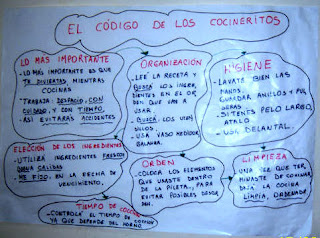 EL CÓDIGO DE LOS COCINERITOS
LO MAS IMPORTANTE
- LO MAS IMPORTANTE ES QUE
TE DIVIERTAS MIENTRAS
COCINAS
- TRABAJA DESPACIO, CON
CUIDADO, Y CON TIEMPO.
ASI EVITARAS ACCIDENTES
ORGANIZACION
- LEÉ LA RECETA Y
BUSCÁ LOS INGRE
DIENTES EN EL OR
DEN QUE VAN A
USAR
- BUSCÁ LOS UTEN
SILIOS.
- USA VASO MEDIDOR
BALANZA.
HIGIENE
- LAVATE BIEN LAS
MANOS.
- GUARDAR ANILLOS Y PUL
SERAS
- SI TENES PELO LARGO,
ATALO
- USA DELANTAL.
ELECCIÓN DE LOS INGREDIENTES
- UTILIZA INGREDIENTES FRESCOS
BUENA CALIDAD
- FIJATE EN LA FECHA DE
VENCIMIENTO.
ORDEN
- COLOCA LOS ELEMENTOS
QUE USASTE DENTRO
DE LA PILETA, PARA
EVITAR POSIBLES DESOR
DEN.
LIMPIEZA
- UNA VEZ QUE TER,
MINASTE DE COCINAR,
DEJA LA COCINA
LIMPIA, ORDENADA.
TIEMPO DE COCCION
- CONTROLA EL TIEMPO DE COCCION
YA QUE DEPENDE DEL HORNO